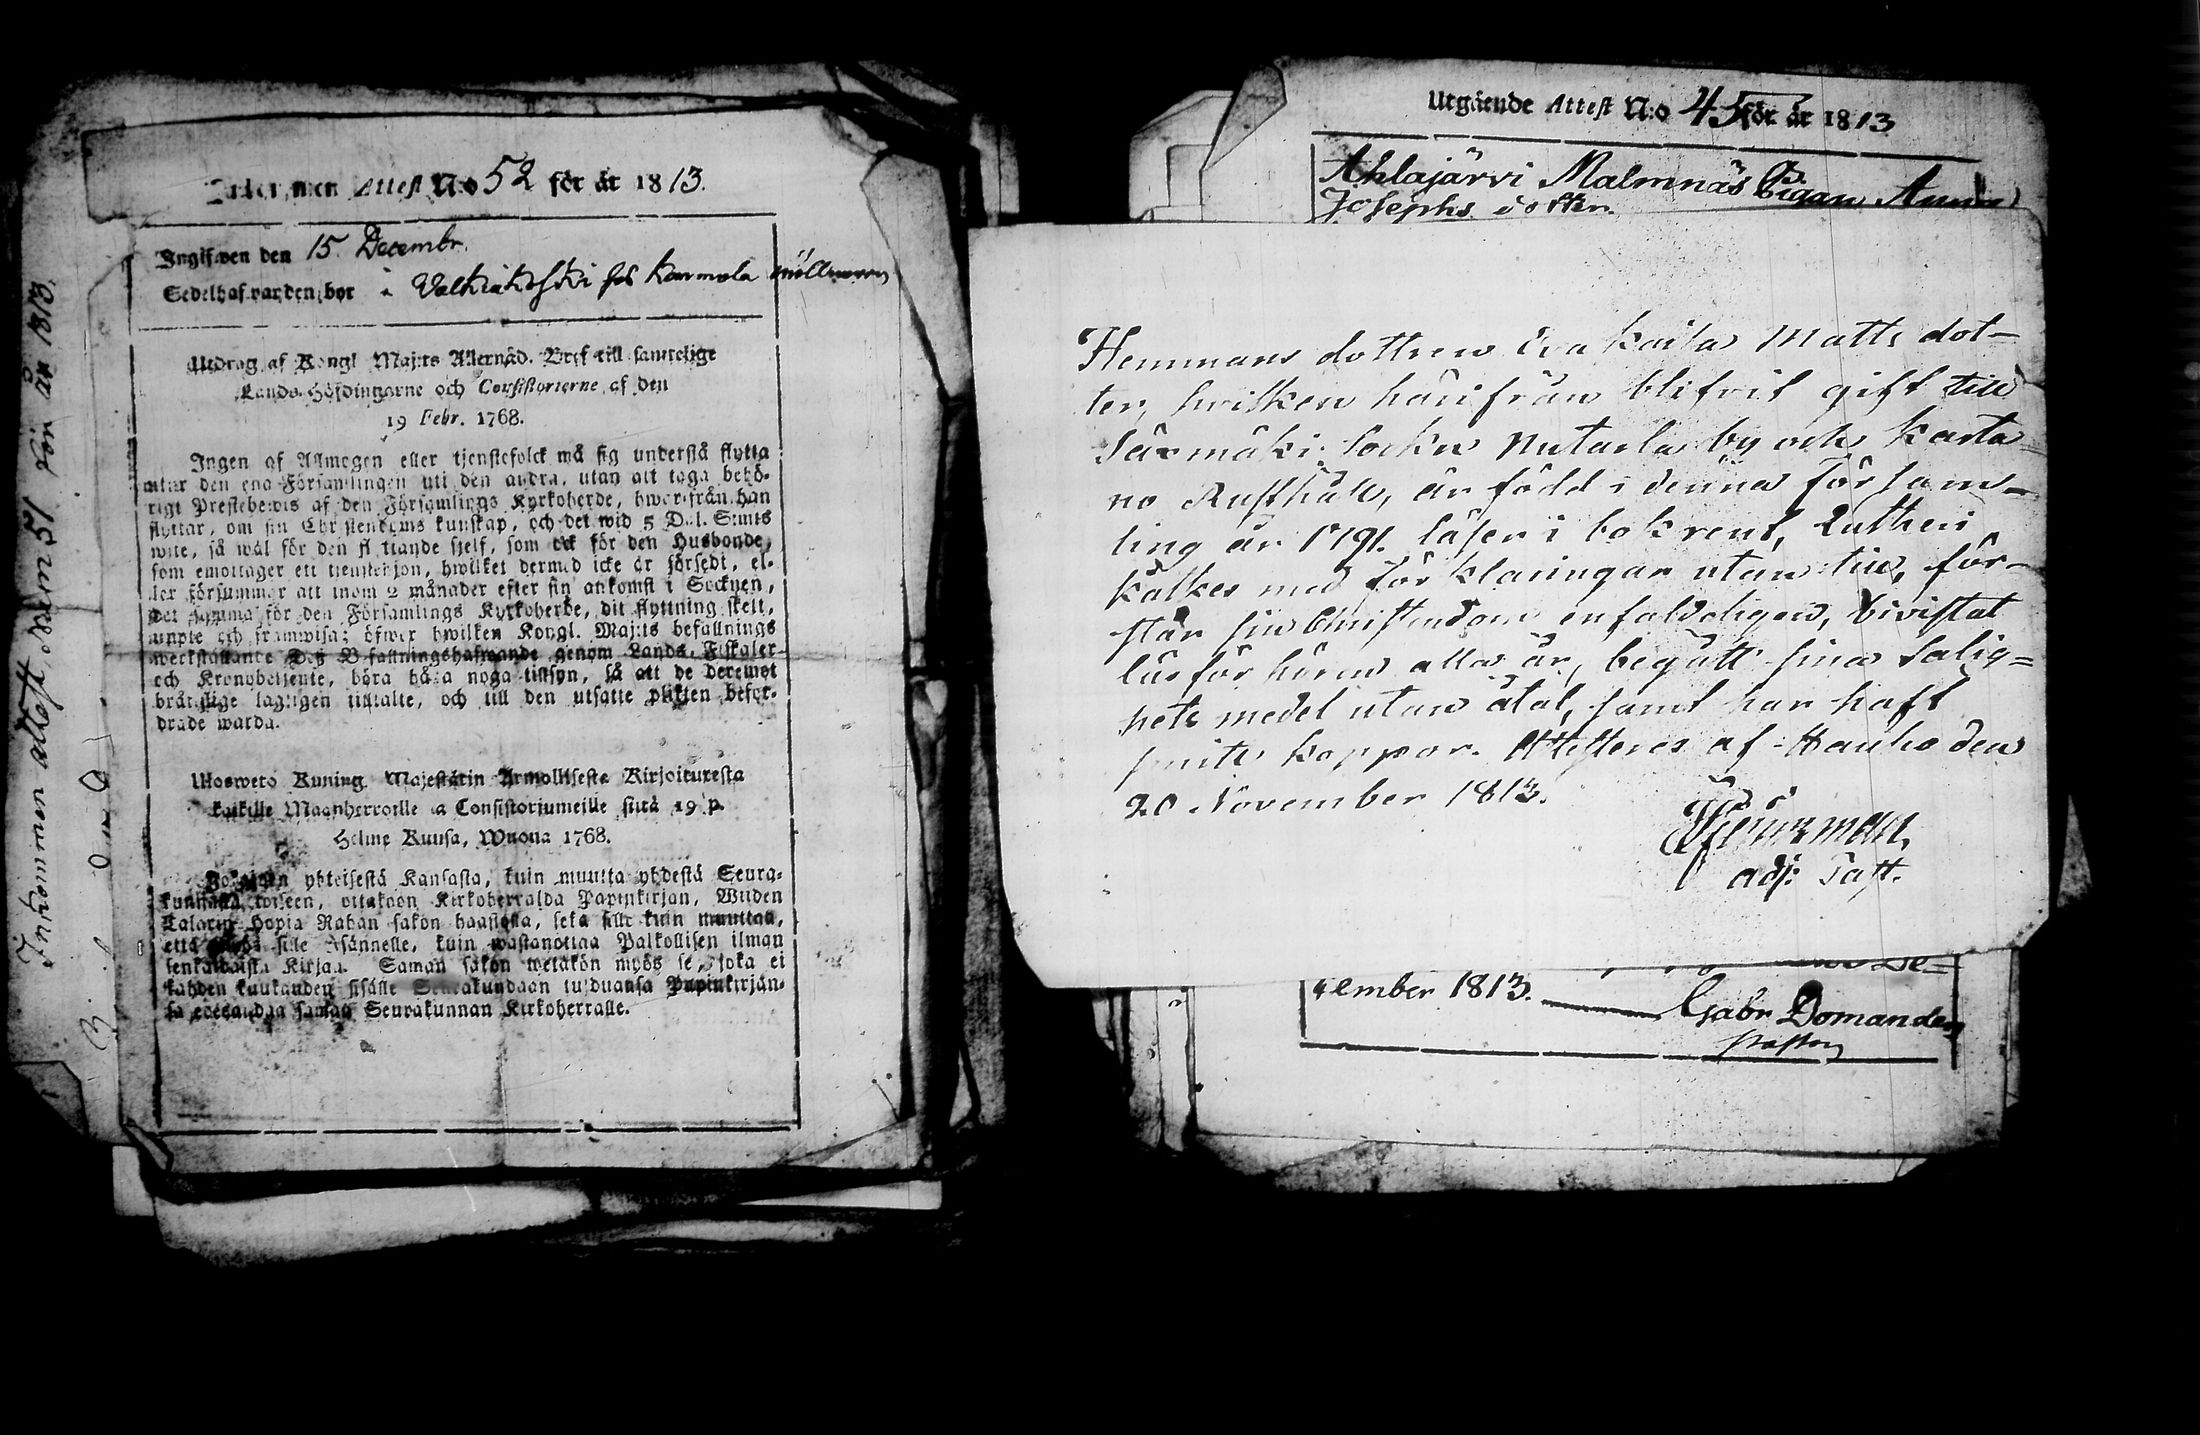 Inkommen attest num 51 för år 1813.
Inkommen Attest N:o 52 för år 1813.
Ingifwen den 15. Decembr.
Sedelhafwanden bor i Valkiakoski hos Kammola möllnaren
Utdrag af Kongl Maj:ts Allernåd. Bref till samtelige
Lands-Höfdingarne och Consistorierne af den
19 Febr. 1768.
Ingen af Allmogen eller tjenstefolck må sig understå flytta
utur den ena Församlingen uti den andra, utan att taga behö-
rigt Prestebewis af den Församlings Kyrkoherde, hwarifrån han
flyttar, om sin Christendoms kunskap, och det wid 5 Dal. S:mts
wite, så wäl för den flyttande sjelf, som ock för den Husbonde,
som emottager ett tjenstehjon, hwilket dermed icke är försedt, el-
ler försummar att inom 2 månader efter sin ankomst i Socknen,
det samma för den Församlings Kyrkoherde, dit flyttning skett,
uppte och framwisa; öfwer hwilken Kongl. Maj:ts befallnings
werkställande Deß Befallningshafwande genom Lands-Fiskaler
och Kronobetjente, böra hafwa noga tillsyn, så att de deremot
bråtslige lagligen tilltalte, och till den utsatte plikten befor-
drade warda.
Ulosweto Kuning. Majestätin Armollisesta Kirjoituresta
kaikille Maanherroille ja Consistoriumeille siitä 19 p.
Helme Kuusa, Wuona 1768.
Jokainen yhteisestä Kansasta, kuin muutta yhdestä Seura-
kunnasta toiseen, ottakoon Kirkoherralda Papinkirjan, Wiiden
Talarin Hopia Rahan sakon haastolla, sekä sille kuin muuttaa,
että myös sille Isännelle, kuin wastanottaa Palkollisen ilman
senkaldaista Kirjaa. Saman sakon wetäkön myös se, joka ei
kahden kuukauden sisälle Seurakundaan tulduansa Papinkirjan-
sa edesanda saman Seurakunnan Kirkoherralle.
Utgående Attest N:o 45 för år 1813
Ahlajärvi Malmnäs Pigan Anna
Josephs dotter.
Hemmans dottren Eva Kaisa Matts dot-
ter, hvilken härifrån blifvit gift till
Säxmäki Socken Mutaela by och Karta
no Rusthåll, är född i denna försam-
ling år 1791. läser i bok rent, Lutheri
katkes med förklaringar utan till, för-
står sin Christendom enfaldeligen, bivistat
läsförhören alla år, begått sina Salig=
hets medel utan åtal, samt har haft
smitt koppor. Attesteres af Hauho den
20 November 1813.
adj: Past.
cember 1813. Gabr Domander
Pastor